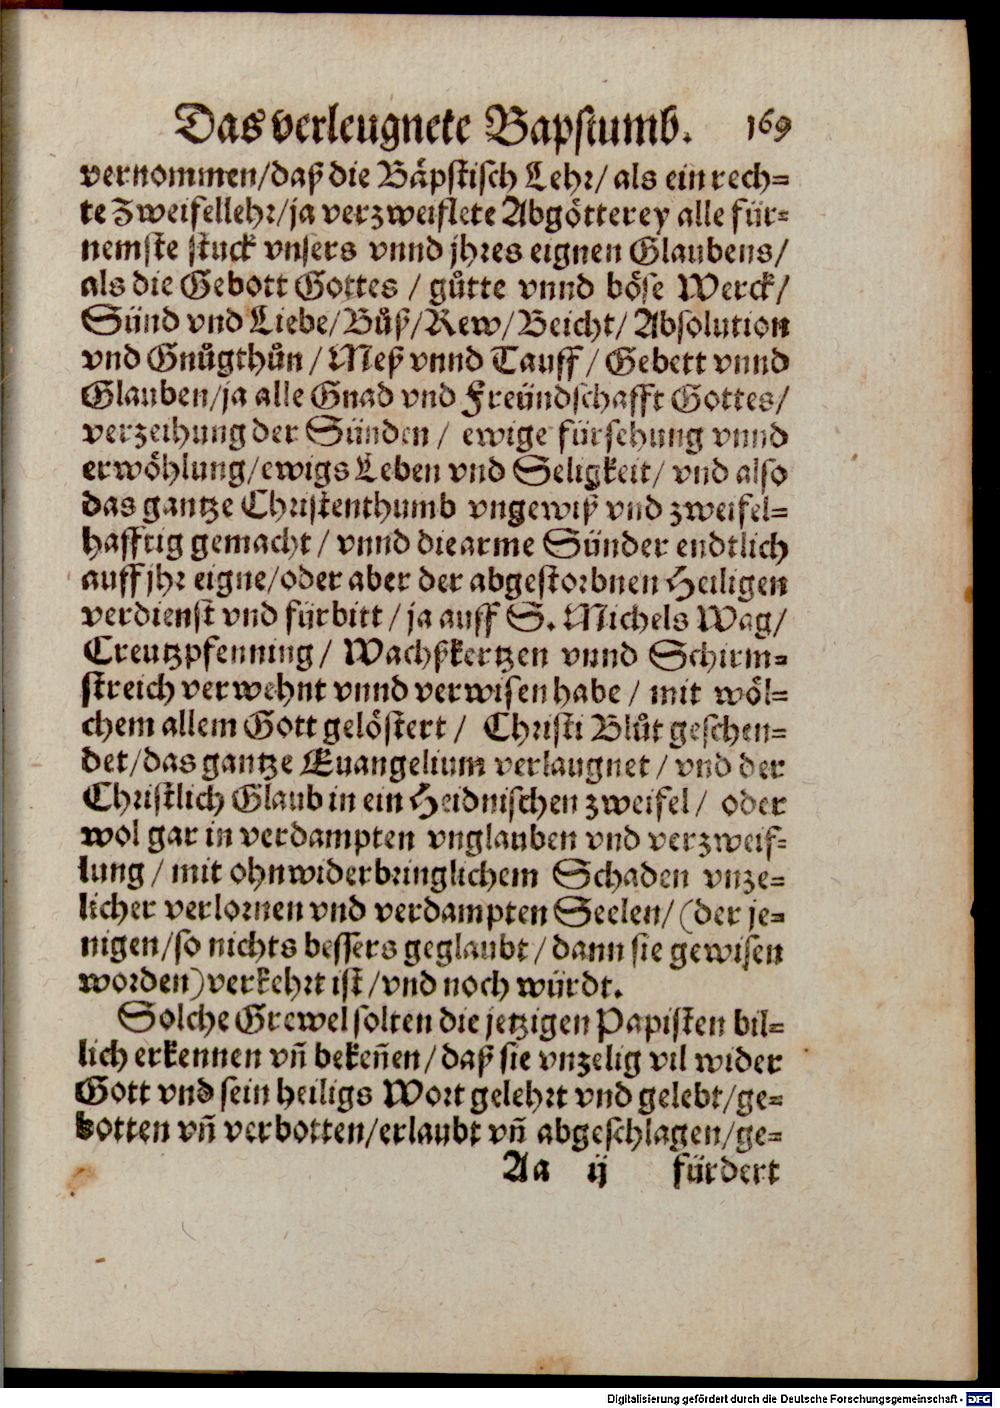 Das verleugnete Bapstumb. 169
vernommen/daß die Bäpstisch Lehr/ als ein rech=
te Zweifellehr/ja verzweiflete Abgötterey alle für=
nemste stuck vnsers vnnd jhres eignen Glaubens/
als die Gebott Gottes / gůtte vnnd böse Werck/
Sünd vnd Liebe/Bůß/Rew/Beicht/ Absolution
vnd Gnůgthůn / Meß vnnd Tauff / Gebett vnnd
Glauben/ja alle Gnad vnd Freündschafft Gottes/
verzeihung der Sünden / ewige fürsehung vnnd
erwöhlung/ewigs Leben vnd Seligkeit/ vnd also
das gantze Christenthumb vngewiß vnd zweifel=
hafftig gemacht / vnnd die arme Sünder endtlich
auff jhr eigne/oder aber der abgestorbnen Heiligen
verdienst vnd fürbitt / ja auff S. Michels Wag/
Creutzpfenning/ Wachßkertzen vnnd Schirm=
streich verwehnt vnnd verwisen habe / mit wöl=
chem allem Gott gelöstert / Christi Blůt geschen=
det/das gantze Euangelium verlaugnet / vnd der
Christlich Glaub in ein Heidnischen zweifel/ oder
wol gar in verdampten vnglauben vnd verzweif=
lung / mit ohnwiderbringlichem Schaden vnze=
licher verlornen vnd verdampten Seelen/ (der je=
nigen/so nichts bessers geglaubt / dann sie gewisen
worden) verkehrt ist /vnd noch würdt.
Solche Grewel solten die jetzigen Papisten bil=
lich erkennen vñ bekeñen/ daß sie vnzelig vil wider
Gott vnd sein heiligs Wort gelehrt vnd gelebt/ge=
botten vñ verbotten/erlaubt vñ abgeschlagen/ge=
Aa ij fürdert
Digitalisierung gefördert durch die Deutsche Forschungsgemeinschaft - DFG